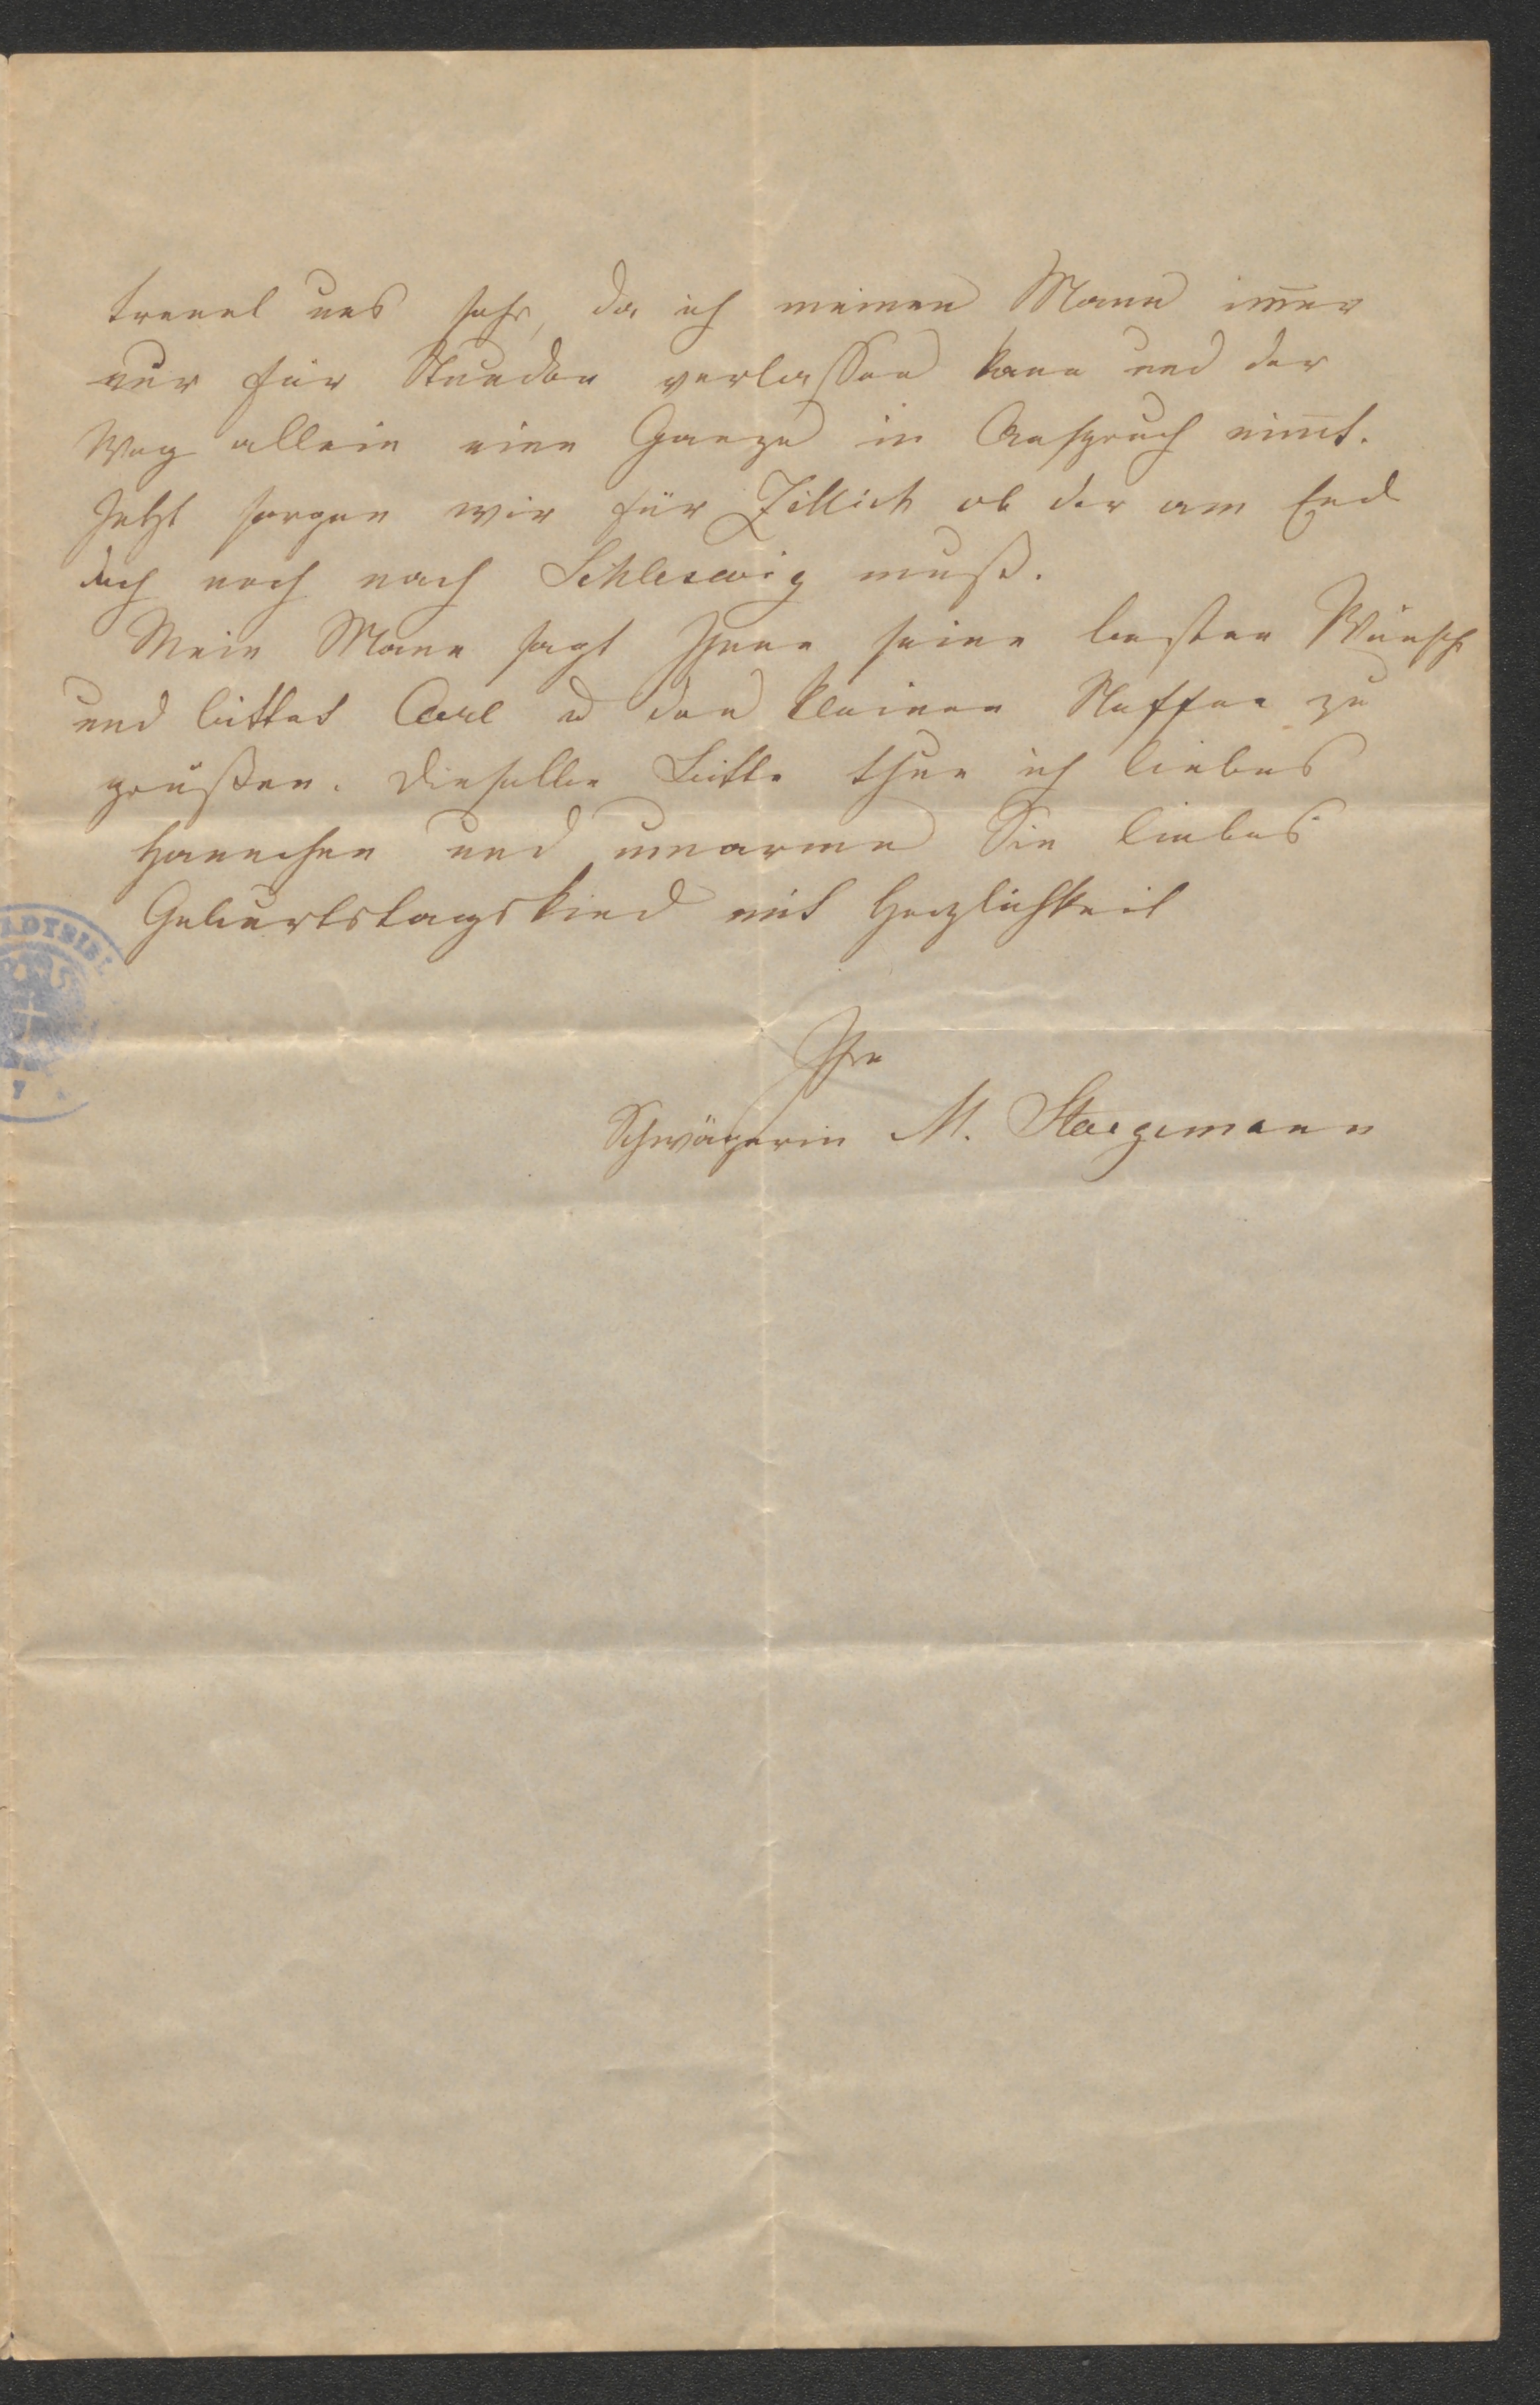 trennt uns sehr, da ich meinen Mann im̅er
nur für Stunden verlassen kann und der
Weg allein eine Ganze in Anspruch nim̅t.
Jetzt sorgen wir für Zillich ob der am End
doch noch nach Schleswig muß.
Mein Mann sagt Ihnen seine besten Wünsche
und bittet Carl u den kleinen Steffen zu
grüßen. Dieselbe Bitte thue ich liebes
Hannchen und umarme Sie liebes
Geburtstagskind mit Herzlichkeit
Ihre
Schwägerin M. Staegemann